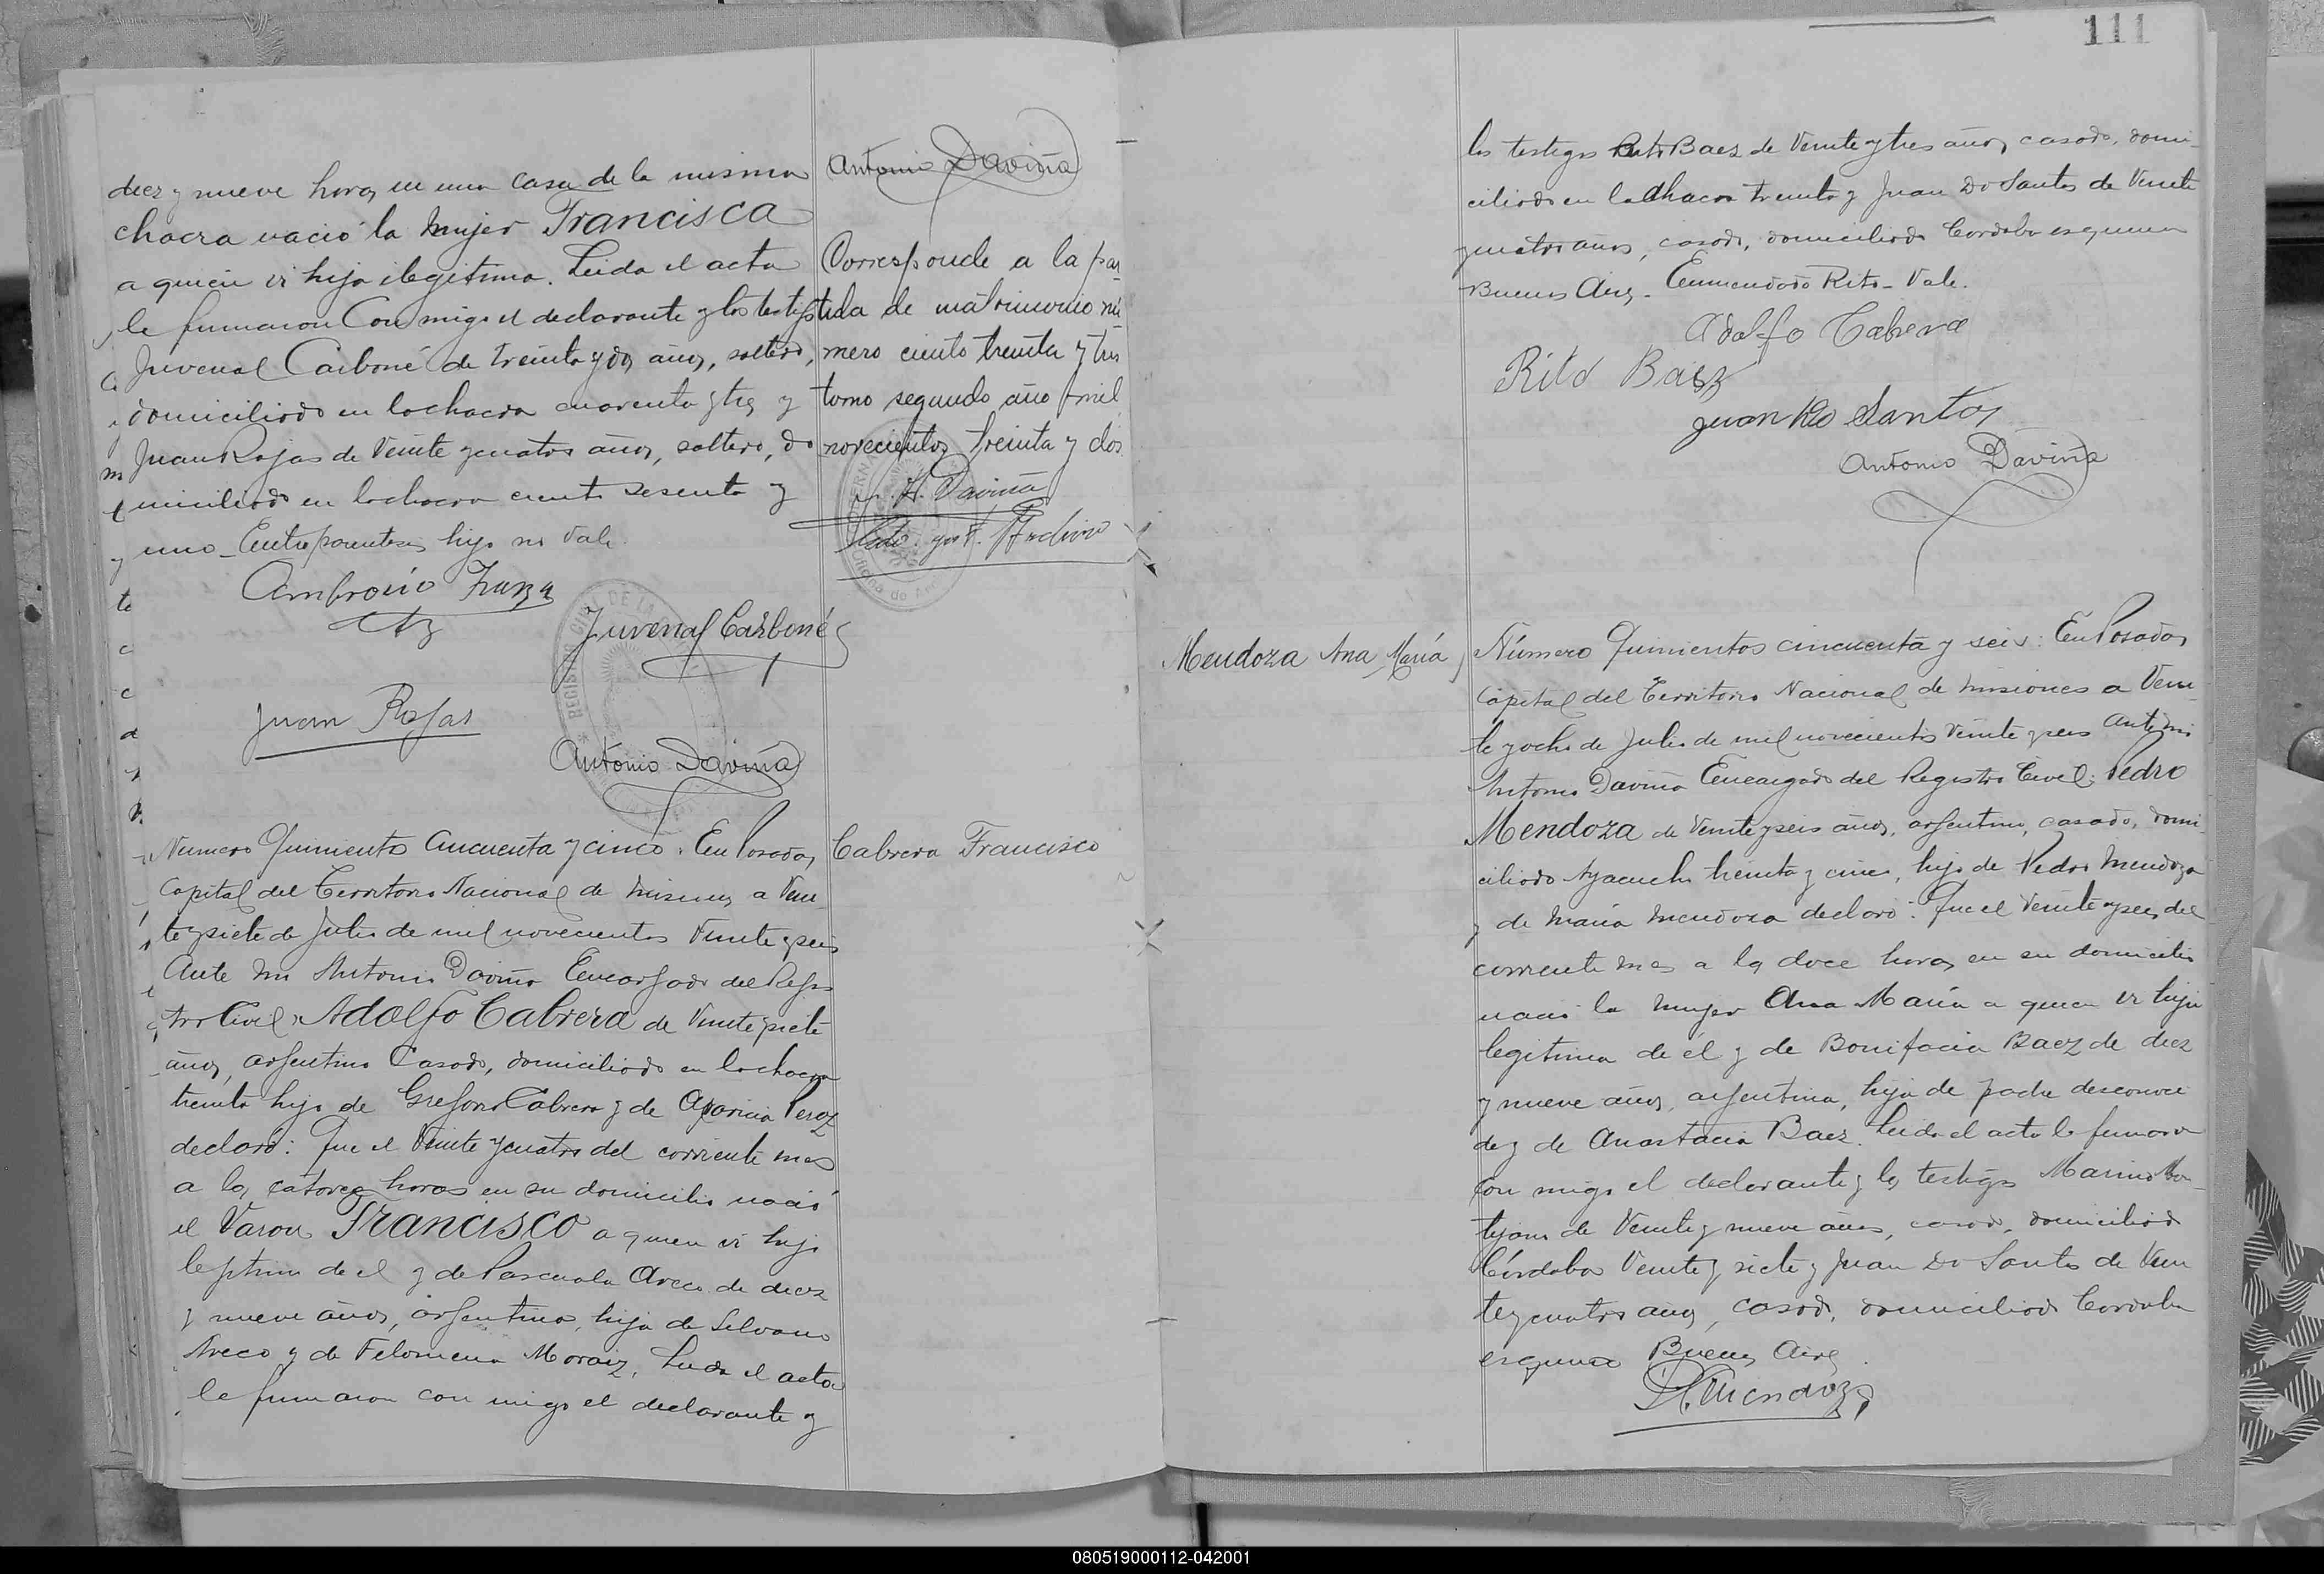 diez y nueve horas en una casa de la misma
chacra nació la mujer Francisca
a quien vi hija ilegitima. Leida el acta
la firmaron Con migo el declarante y los testigos
Juvenal Carboné de treinta y dos años, soltero,
domiciliado en la chacra cuarenta y tres y
Juan Rojas de Veinte y cuatro años, soltero, do
miciliado en la chacra ciento sesenta y
uno_ Entreparentesis hijo no Vale.
Ambrosio
Juvenal Carboné
Juan Rojas
Antonio Daviña
Antonio Daviña
Corresponde a la par
tida de matrimonio nú
mero ciento treinta y tres
tomo segundo año mil
novecientos treinta y dos
A. Daviña
Archivo
Cabrera Francisco
Numero Quiniento Cincuenta y cinco. En Posadas,
Capital del Territorio Nacional de Misiones, a Vein
te y siete de Julio de mil novecientos Veinte y seis
Ante mi Antonio Daviña Encargado del Regis
tro Civil, Adolfo Cabrera de Veinte y siete
años, argentino Casado, domiciliado en la chacra
treinta hijo de Gregorio Cabrera y de Aparicia Perez
declaró: Que el Veinte y cuatro del corriente mes
a las catorce horas en su domicilio nació
el Varon Francisco a quien vi hijo
legitimo de el y de Pascuala Areco de diez
y nueve años, argentina, hija de Silvano
Areco y de Filomena Moraiz, Leida el acta
la firmaron con migo el declarante y
111
los testigos Rito Baez de Veinte y tres años, casado, domi
ciliado en la chacra treinta y Juan Do Santos de Veinte
y cuatro años, casado, domiciliado Cordoba esquina
Buenos Aires_ Enmendado Rito_ Vale.
Adolfo Cabrera
Rito Baez
Juan Do Santos
Antonio Daviña
Mendoza Ana María
Número Quinientos cincuenta y seis: En Posadas,
Capital del Territorio Nacional de Misiones a Vein
te y ocho de Julio de mil novecientos Veinte y seis Ante mi
Antonio Daviña Encargado del Registro Civil: Pedro
Mendoza de Veinte y seis años, argentino, casado, domi
ciliado Ayacucho treinta y cinco, hijo de Pedro Mendoza
y de María Mendoza declaró: Que el Veinte y seis del
corriente mes a las doce horas en su domicilio
nació la mujer Ana María a quien vi hija
legitima de él y de Bonifacia Baez de diez
y nueve años, argentina, hija de padre desconoci
do y de Anastacia Baez. Leida el acta la firmaron
con migo el declarante y los testigos Marino
de Veinte y nueve años, casado, domiciliado
Córdoba Veinte y siete y Juan Do Santos de Vein
te y cuatro años, casado, domiciliado Cordoba
esquina Buenos Aires.
P. Mendoza
080519000112-042001